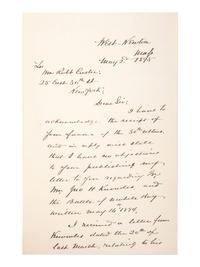 West-Newton
Mass
May 3d 1895
To
Mr Robt Coster,
25 East 30th St
New York;
Dear Sir;
I have to
acknowledge the receipt of
your favor of the 30th ultimo,
and in reply will state
that I have no objections
to your publishing my
letter to you regarding
Mr Geo H Knowles, and
the Battle of Mobile Bay,
written May 14th 1894,
I received a letter from
Knowles dated the 20th of
last March, relating to his